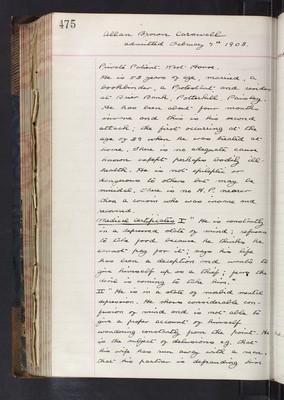 475
Allan Brown Carswell
admitted February 7th 1908.
Private Patient. West House.
He is 53 years of age, married, a
bookbinder, a Protestant and resides
at Brier Bank, Potterhill Paisley.
He has been about four months
insane and this is his second
attack; the first occurring at the
age of 29 when he was treated at
home. There is no adequate cause
known except perhaps bodily ill-
health. He is not epileptic or
dangerous to others but may be
suicidal. There is no H.P. nearer
than a cousin who was insane and
recovered.
Medical Certificates I "He is constantly
in a depressed state of mind; refuses
to take food because he thinks he
cannot pay for it; says his life
has been a deception and wants to
give himself up as a thief; fears the
devil is coming to take him.
II "He is in a state of morbid mental
depression. He shows considerable con-
fusion of mind and is not able to
give a proper account of himself
wandering constantly from the point. He
is the subject of delusions e.g. that
his wife has run away with a man,
that his partner is defrauding him